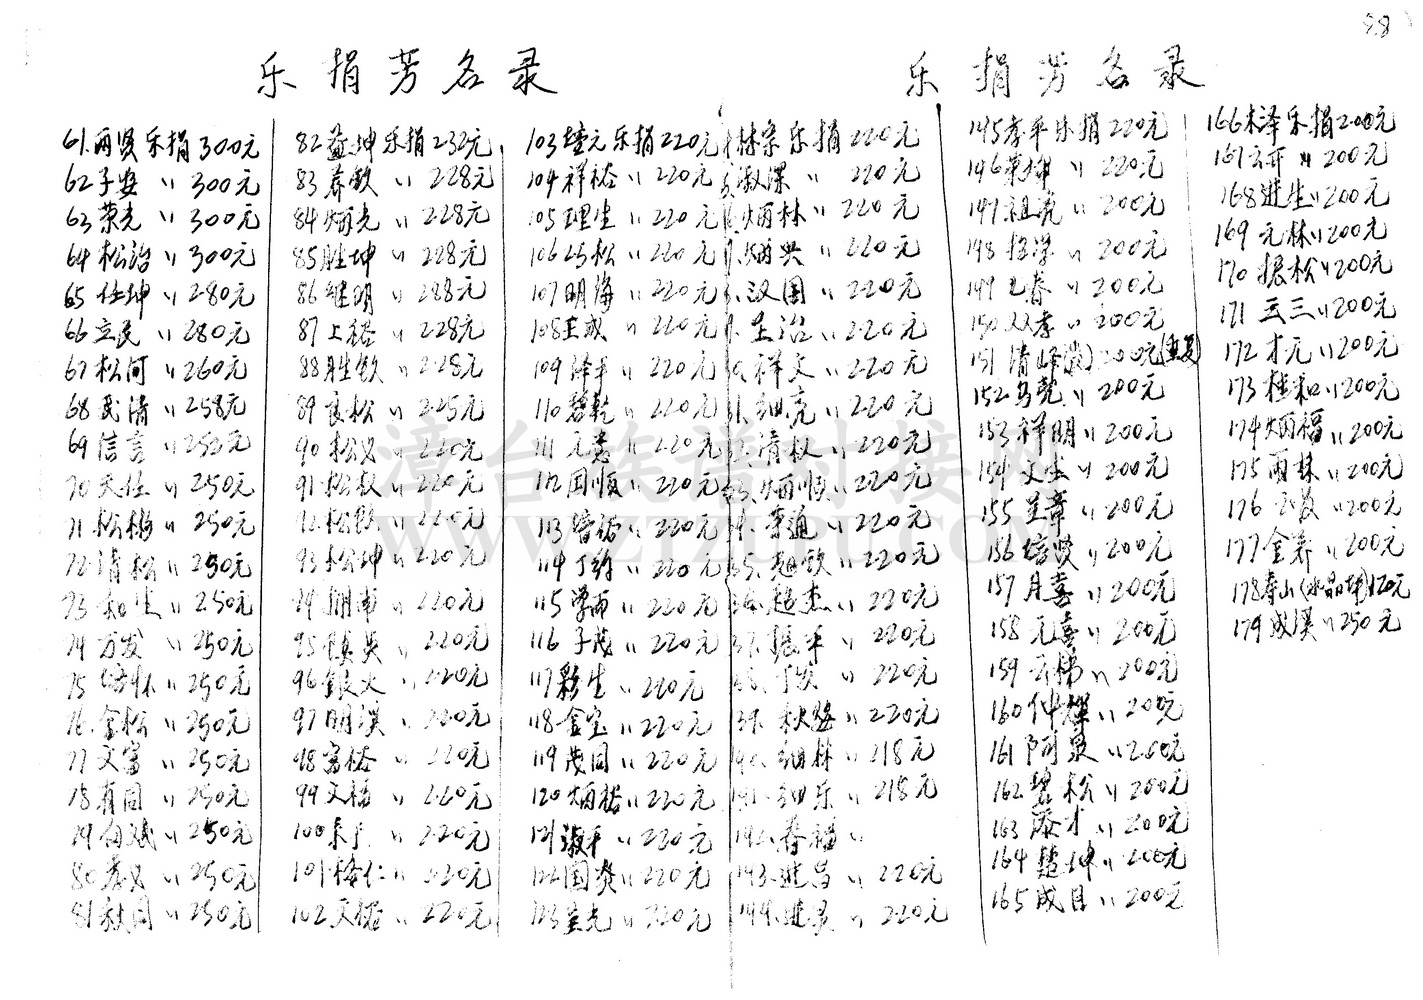 98
乐捐芳名录
61.两贤乐捐300元
62子安 〃 300元
63荣光 〃 300元
64松治 〃 300元
65任坤 〃 280元
66立民 〃 280元
67松河 〃 260元
68民清 〃 258元
69信言 〃 252元
70天任 〃 250元
71松彬 〃 250元
72清松 〃 250元
73和生 〃 250元
74万发 〃 250元
75培怀 〃 250元
76.金松 〃 250元
77文富 〃 250元
78有同 〃 250元
79 〃 250元
80孝义 〃 250元
81秋同 〃 250元
82益坤乐捐232元
83养钦 〃 228元
84炳光 〃 228元
85胜坤 〃 228元
86继明 〃 228元
87上裕 〃 228元
88胜钦 〃 228元
89良松 〃 225元
90松义 〃 220元
91松权 〃 220元
92松钦 〃 220元
93松坤 〃 220元
94朝南 〃 220元
95镇兴 〃 220元
96银火 〃 220元
97明溪 〃 220元
98富裕 〃 220元
99文福 〃 220元
100 〃 220元
101 〃 220元
102天裕 〃 220元
103 乐捐220元
104祥裕 〃 220元
105理生 〃 220元
106巧松 〃 220元
107明海 〃 220元
108 〃 220元
109泽平 〃 220元
110碧乾 〃 220元
111元意 〃 220元
112国顺 〃 220元
113 〃 220元
114丁 〃 220元
115 〃 220元
116子茂 〃 220元
117 生 〃 220元
118金宝 〃 220元
119茂同 〃 220元
120炳裕 〃 220元
121淑平 〃 220元
122国贵 〃 220元
123 光 〃 220元
林宗乐捐220元
淑深 〃 220元
炳林 〃 220元
炳兴 〃 220元
汉国 〃 220元
治 〃 220元
祥文 〃 220元
细亮 〃 220元
清权 〃 220元
炳顺 〃 220元
通 〃 220元
钦 〃 220元
超杰 〃 220元
振平 〃 220元
丁炎 〃
39.秋 〃 220元
细林 〃 218元
细乐 〃 218元
142.春福 〃
143.进昌 〃 220元
144.进 〃 220元
乐捐芳名录
145孝平乐捐220元
146荣坤 〃 220元
147祖虎 〃 200元
148 深 〃 200元
149 春 〃 200元
150双孝 〃 200元
151清(峰 )200元(重复)
152乌 〃 200元
153祥明 〃 200元
154文生 〃 200元
155 章 〃 200元
156培贤 〃 200元
157月喜 〃 200元
158元喜 〃 200元
159云梯 〃 200元
160仲辉 〃 200元
161阿泉 〃 200元
162碧松 〃 200元
163添才 〃 200元
164楚坤 〃 200元
165成目 〃 200元
166木泽乐捐200元
167云开 〃 200元
168进生 〃 200元
169元林 〃 200元
170振松 〃 200元
171云三 〃 200元
172才元 〃 200元
173桂和 〃 200元
174炳福 〃 200元
175雨林 〃 200元
176 〃 200元
177金养 〃 200元
178寿山(水晶坪)120元
179成溪 〃 250元
漳台族谱对接网
www.ztzupu.com